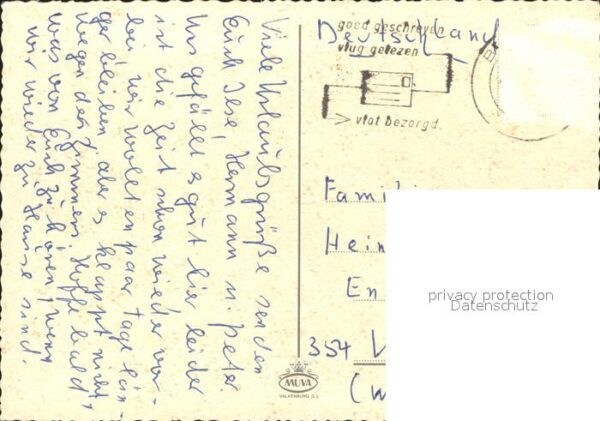 Viele Urlaubsgrüße senden
Euch Ilse, Hermann u. Peter.
Uns gefällt es gut hier leider
ist die Zeit schon wieder vor-
bei wir wollten paar Tage län-
ger bleiben aber es klappt nicht
wegen des Zimmers. Hoffe bald
was von Euch zu hören, wenn
wir wieder zu Hause sind.
Deutschland
goed geschreven
vlug gelezen
> vlot bezorgd.
Famili
Hein
En
354
privacy protection
Datenschutz
MUVA
VALKENBURG (L.)